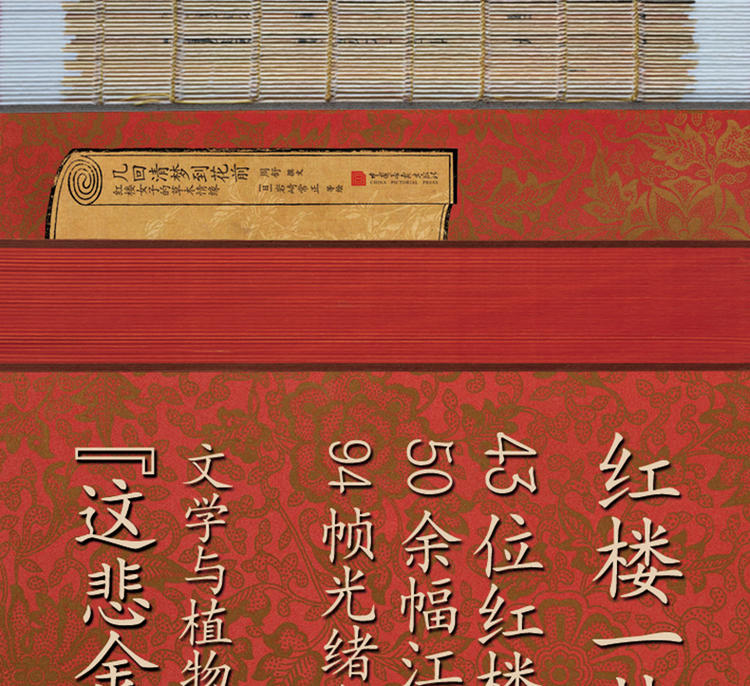 几回清梦到花前
红楼女子的草木情缘
周舒 撰文
[日]岩崎常正 等绘
中国画报出版社
CHINA PICTORIAL PRESS
红楼一
43位红楼
50余幅江
94帧光绪
文学与植物
『这悲金